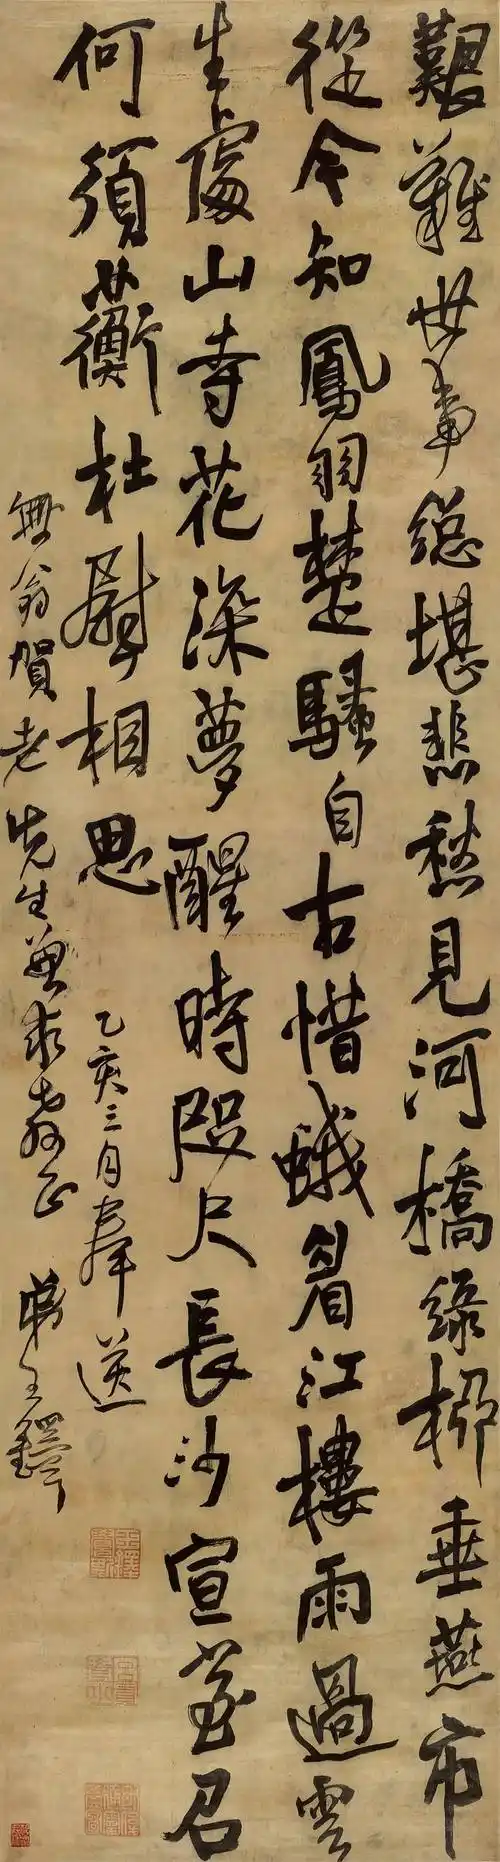 艱難世事總堪悲愁見河橋綠柳垂燕市
從今知鳳羽楚騷自古惜蛾眉江樓雨過雲
生處山寺花深夢醒時咫尺長沙宣室召
何須蘅杜慰相思
乙亥三月奉送
無翁賀老先生兼求教正 弟王鐸